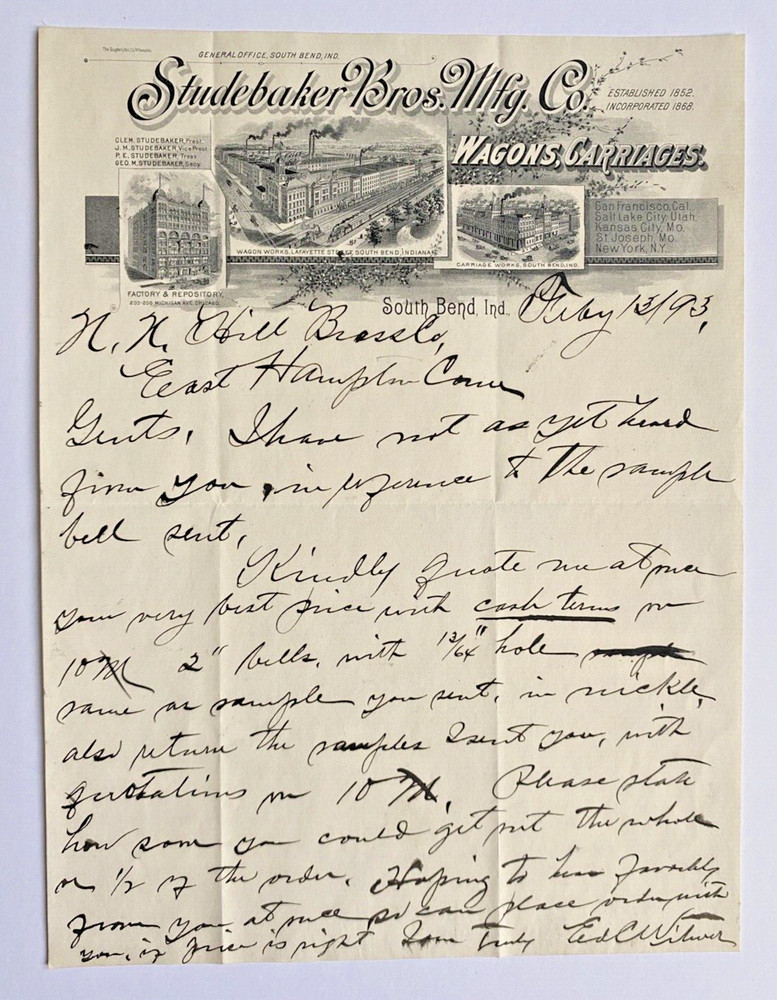 GENERAL OFFICE, SOUTH BEND, IND.
Studebaker Bros. Mfg. Co.
ESTABLISHED 1852.
INCORPORATED 1868.
CLEM. STUDEBAKER, Prest.
J. M. STUDEBAKER, Vice Prest.
P. E. STUDEBAKER, Treas.
GEO. M. STUDEBAKER, Secy.
WAGONS, CARRIAGES.
San Francisco, Cal.
Salt Lake City, Utah.
Kansas City, Mo.
St. Joseph, Mo.
New York, N.Y.
WAGON WORKS, LAFAYETTE STREET, SOUTH BEND, INDIANA.
CARRIAGE WORKS, SOUTH BEND, IND.
FACTORY & REPOSITORY,
MICHIGAN AVE. CHICAGO.
South Bend, Ind., Feby 13/93,
N. N. Hill Brass Co,
East Hampton Conn
Gents, I have not as yet heard
from you, in reference to the sample
bell sent,
Kindly quote me at once
your very best price with cash terms on
10 M 2" bells, with 13/64" hole
same as sample you sent, in nickle,
also return the samples I sent you, with
quotations on 10 M, Please state
how soon you could get out the whole
or 1/2 of the order. Hoping to hear favorably
from you at once so can place order with
you, if price is right Yours Truly Ed C